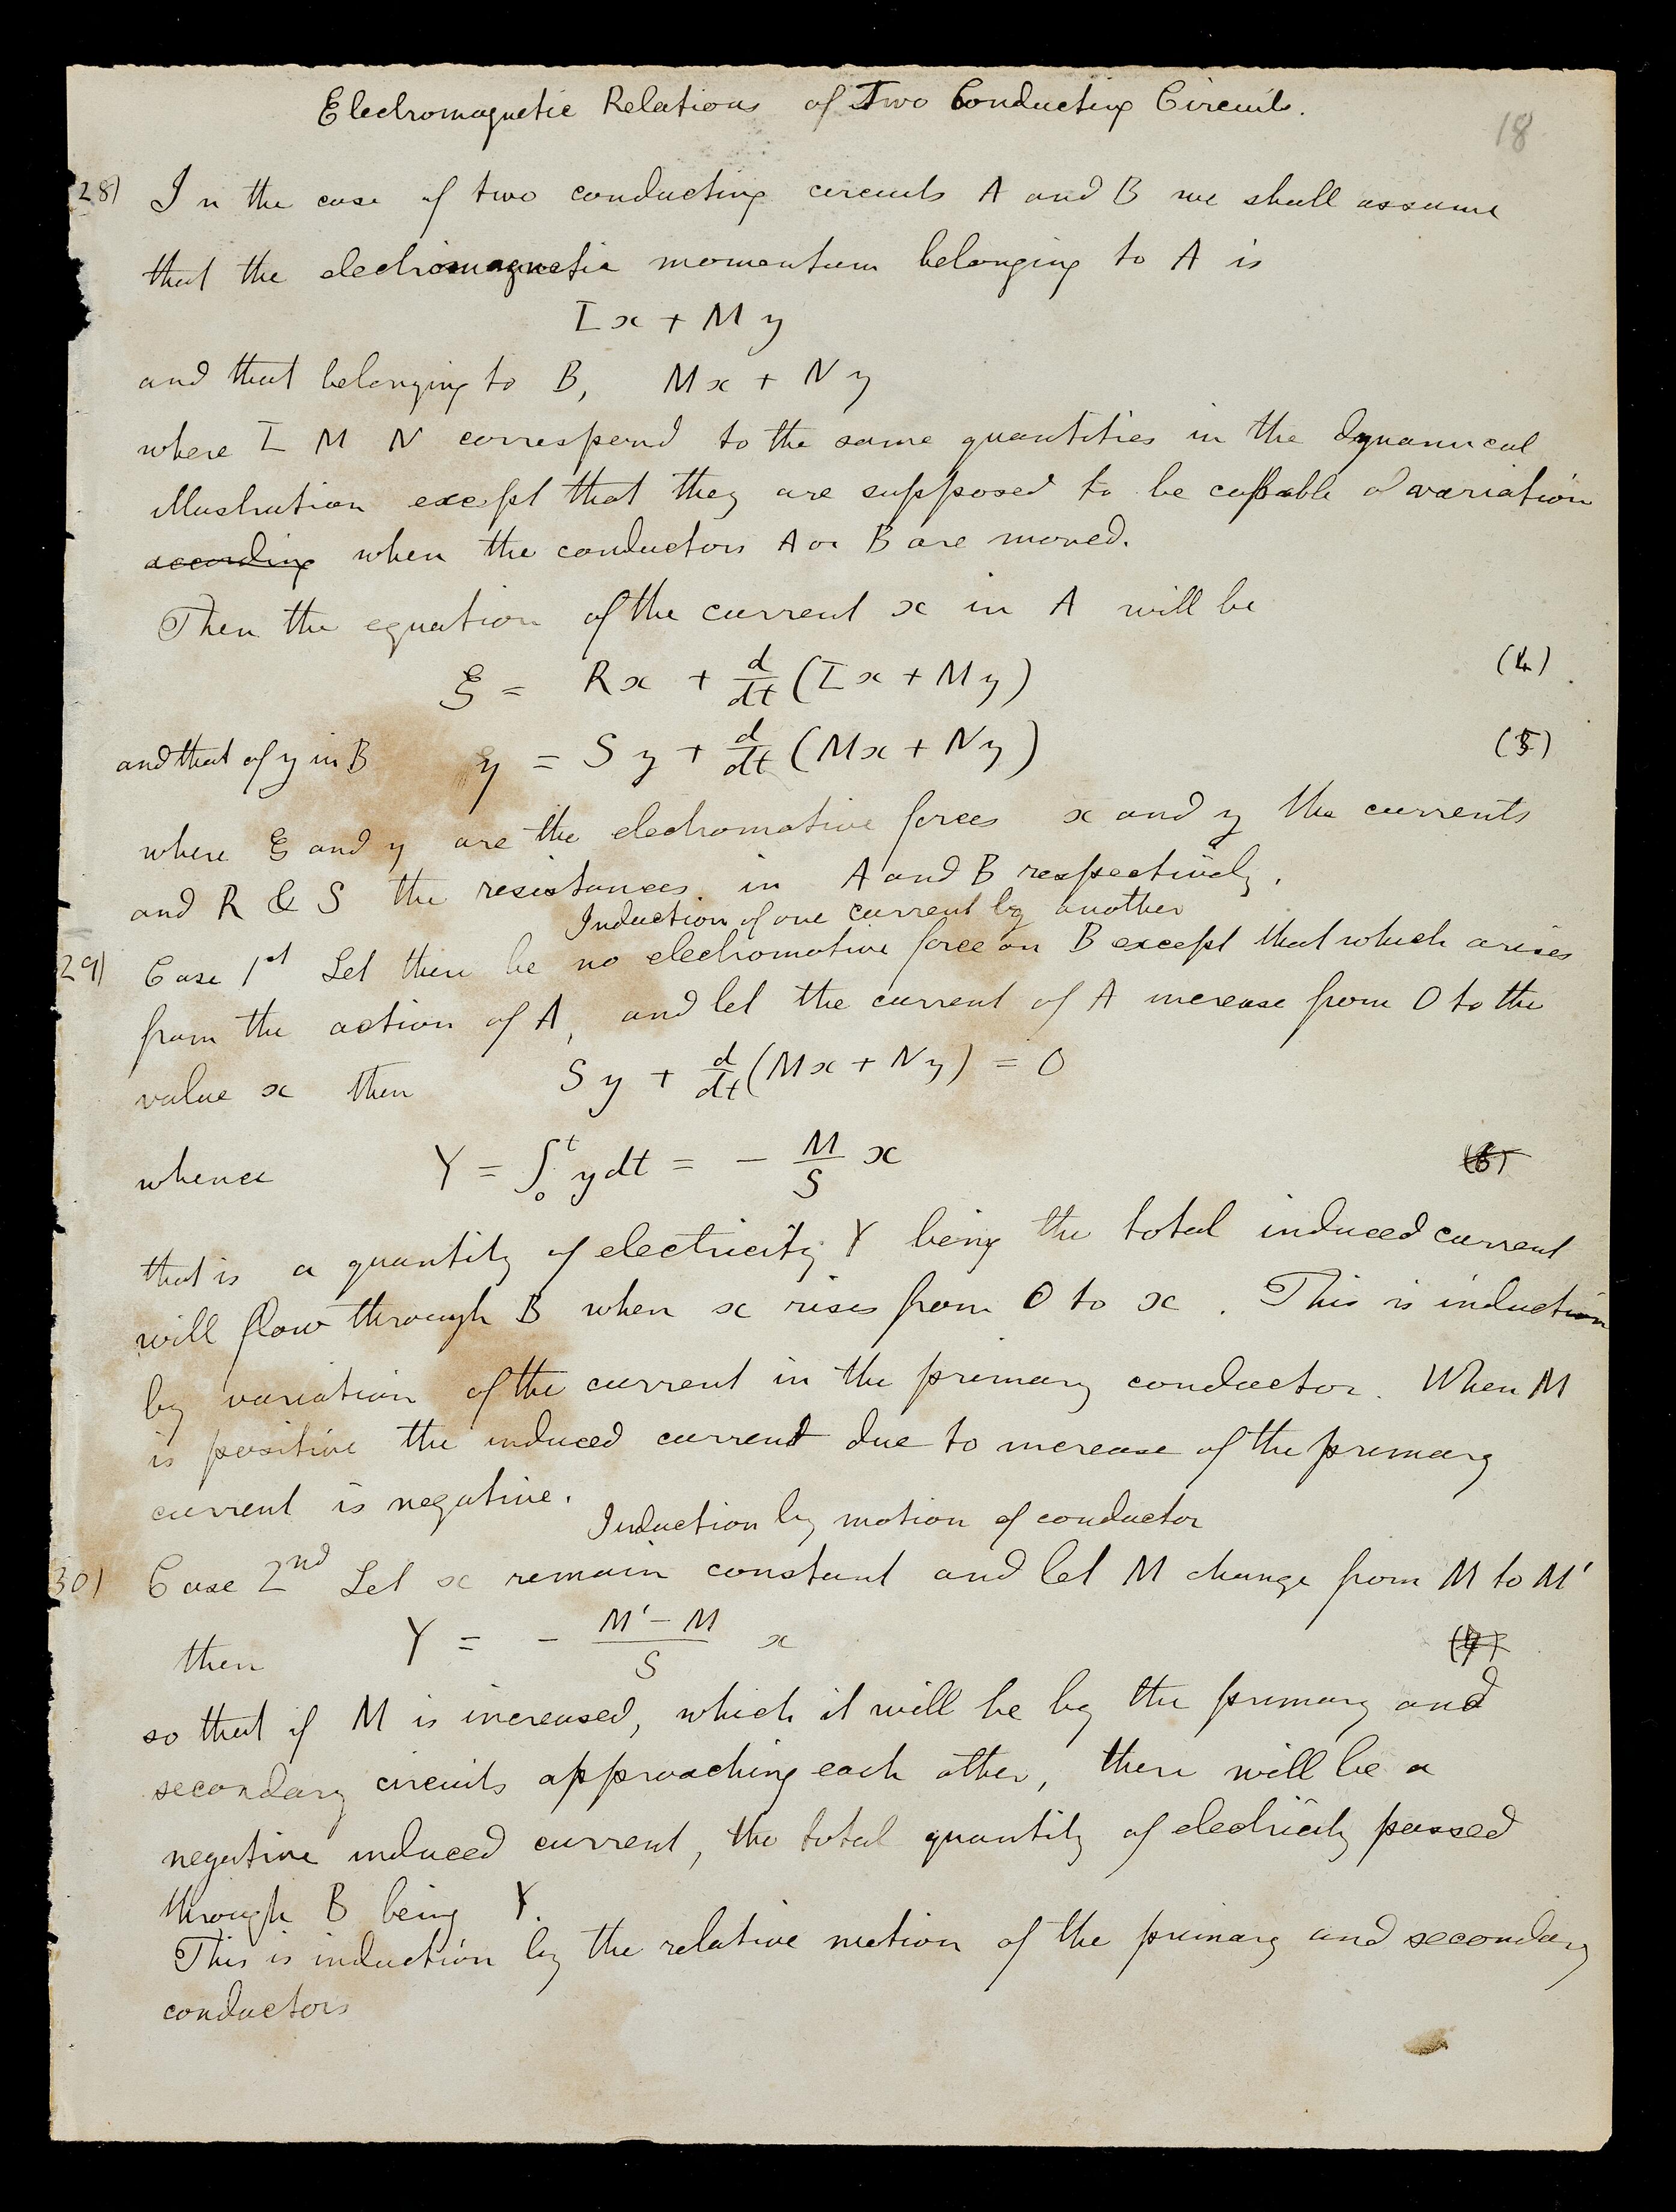 Electromagnetic Relations of Two Conducting Circuits.
18
28) In the case of two conducting circuits A and B we shall assume
that the electromagnetic momentum belonging to A is
Lx + My
and that belonging to B, Mx + Ny
where L M N correspond to the same quantities in the dynamical
illustration except that they are supposed to be capable of variation
according when the conductors A or B are moved.
Then the equation of the current x in A will be
ξ = Rx + d/dt (Lx + My) (4)
and that of y in B η = Sy + d/dt (Mx + Ny) (5)
where ξ and η are the electromotive forces x and y the currents
and R & S the resistances in A and B respectively.
Induction of one current by another
29) Case 1st Let there be no electromotive force on B except that which arises
from the action of A, and let the current of A increase from 0 to the
value x then Sy + d/dt (Mx + Ny) = 0
whence Y = ∫₀ᵗ y dt = - M/S x (6)
that is a quantity of electricity Y being the total induced current
will flow through B when x rises from 0 to x. This is induction
by variation of the current in the primary conductor. When M
is positive the induced current due to increase of the primary
current is negative.
Induction by motion of conductor
30) Case 2nd Let x remain constant and let M change from M to M'
then Y = - (M' - M)/S x (7)
so that if M is increased, which it will be by the primary and
secondary circuits approaching each other, there will be a
negative induced current, the total quantity of electricity passed
through B being Y.
This is induction by the relative motion of the primary and secondary
conductors